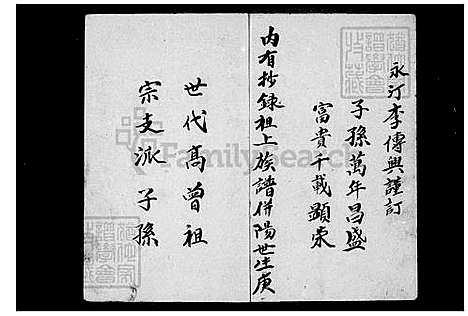 永汀李傳興謹訂
子孫萬年昌盛
富貴千載顯榮
内有抄錄祖上族譜併陽世生庚
世代高曾祖
宗支派子孫
FamilySearch